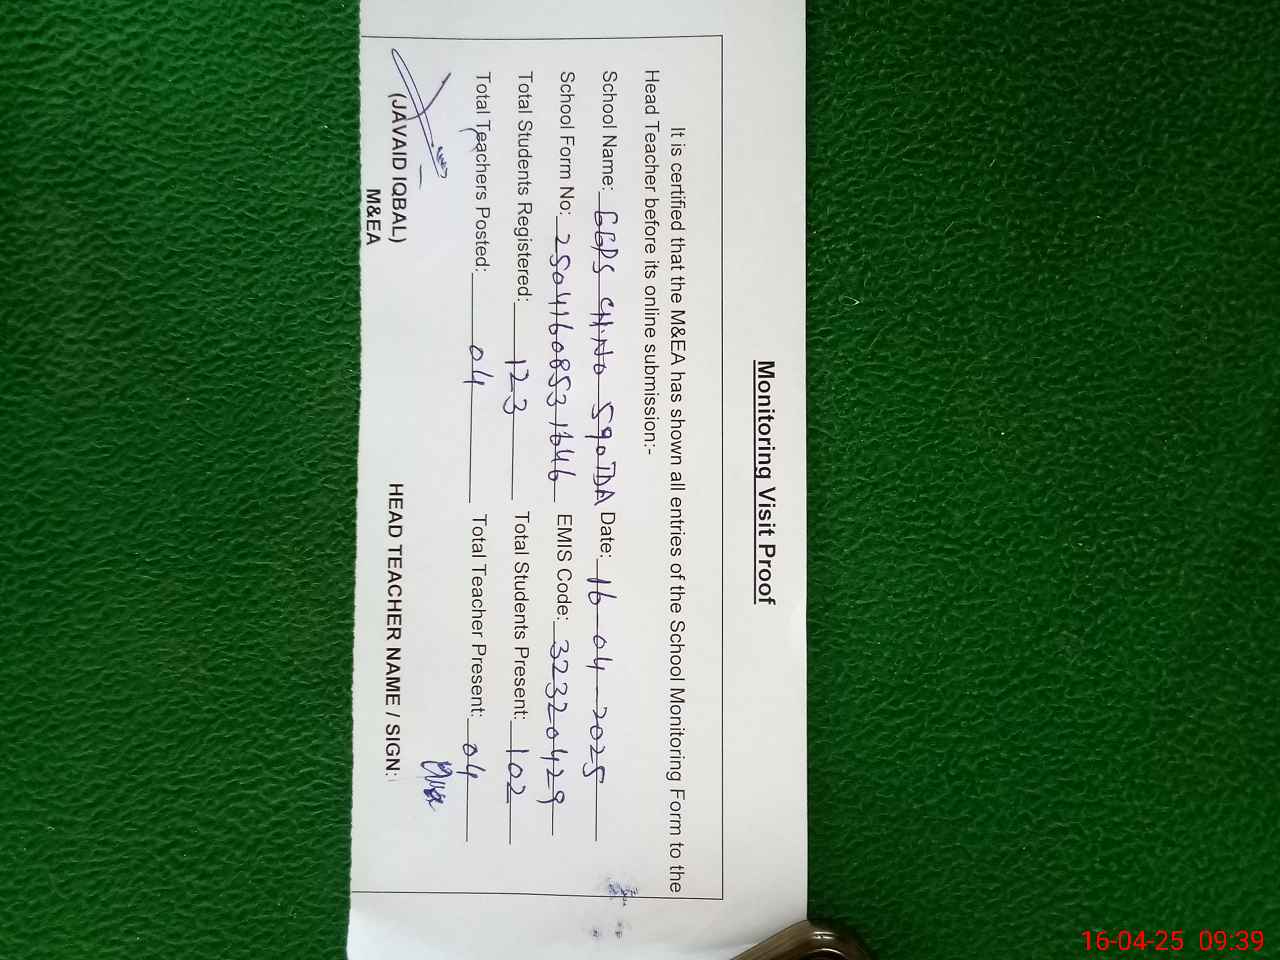 Monitoring Visit Proof
It is certified that the M&EA has shown all entries of the School Monitoring Form to the
Head Teacher before its online submission:-
School Name: GGPS CH.No 590TDA Date: 16-04-2025
School Form No: 25041608531646 EMIS Code: 32320429
Total Students Registered: 123 Total Students Present: 102
Total Teachers Posted: 04 Total Teacher Present: 04
(JAVAID IQBAL) HEAD TEACHER NAME / SIGN:
M&EA
16-04-25 09:39